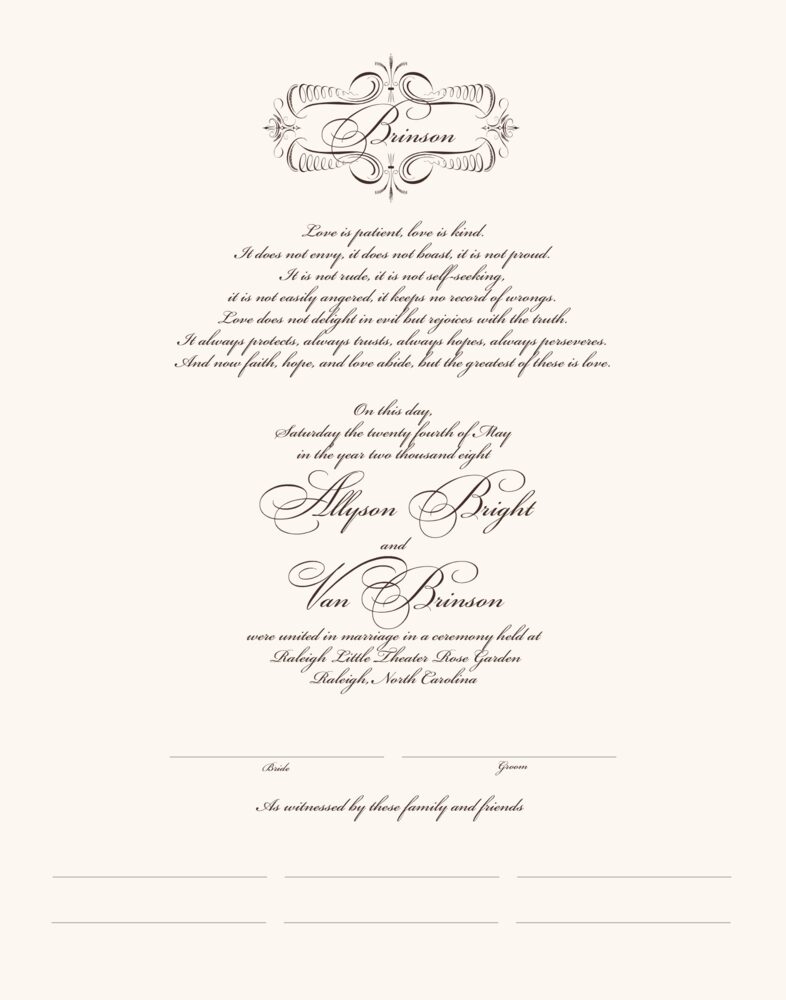 Brinson
Love is patient, love is kind.
It does not envy, it does not boast, it is not proud.
It is not rude, it is not self-seeking,
it is not easily angered, it keeps no record of wrongs.
Love does not delight in evil but rejoices with the truth.
It always protects, always trusts, always hopes, always perseveres.
And now faith, hope, and love abide, but the greatest of these is love.
On this day,
Saturday the twenty fourth of May
in the year two thousand eight
Allyson Bright
and
Van Brinson
were united in marriage in a ceremony held at
Raleigh Little Theater Rose Garden
Raleigh, North Carolina
Bride
Groom
As witnessed by these family and friends